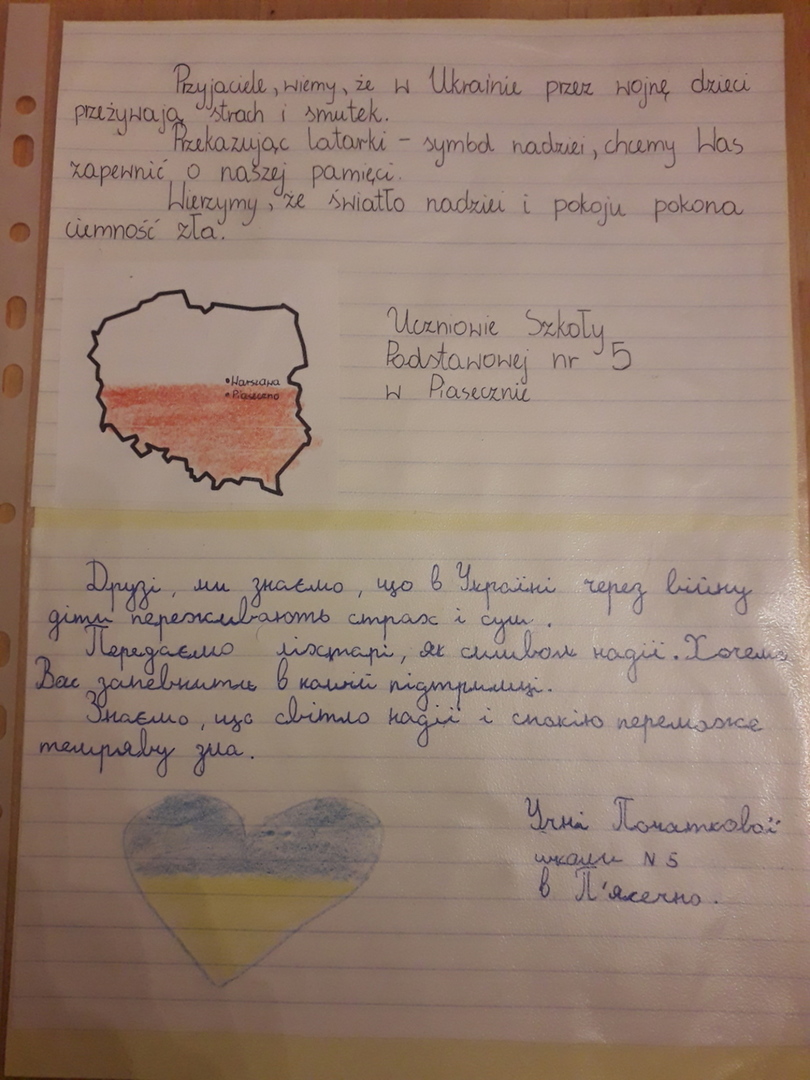 Przyjaciele, wiemy, że w Ukrainie przez wojnę dzieci
przeżywają strach i smutek.
Przekazując latarki – symbol nadziei, chcemy Was
zapewnić o naszej pamięci.
Wierzymy, że światło nadziei i pokoju pokona
ciemność zła.
•Warszawa
•Piaseczno
Uczniowie Szkoły
Podstawowej nr 5
w Piasecznie
Друзі, ми знаємо, що в Україні через війну
діти переживають страх і сум.
Передаємо ліхтарі, як символ надії. Хочемо
Вас запевнить в нашій підтримці.
Знаємо, що світло надії і спокію переможе
темряву зла.
Учні Початкової
школи N 5
в П'ясечно.